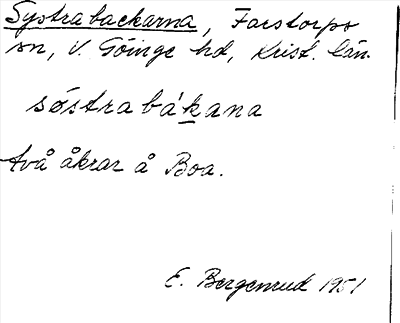 Systrabackarna, Farstorps
sn, V. Göinge hd, Krist. län.
sóstrabákana
två åkrar å Boa.
E. Bergenrud 1951